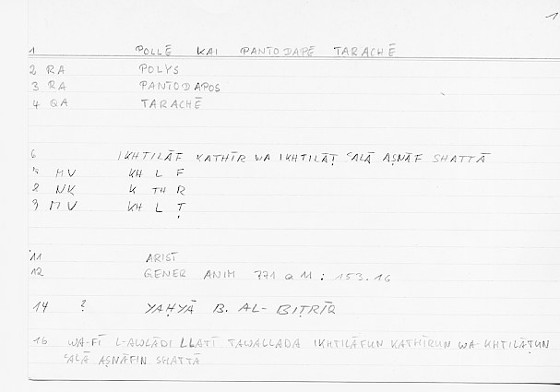 1
1 POLLĒ KAI PANTODAPĒ TARACHĒ
2 RA POLYS
3 RA PANTODAPOS
4 QA TARACHĒ
6 IKHTILĀF KATHĪR WA IKHTILĀṬ ʿALĀ AṢNĀF SHATTĀ
MV KH L F
8 NK K TH R
9 MV KH L Ṭ
11 ARIST
12 GENER ANIM 771 a 11 : 153.16
14 ? YAḤYĀ B. AL-BIṬRĪQ
16 WA-FĪ L-AWLĀDI LLATĪ TAWALLADA IKHTILĀFUN KATHĪRUN WA-KHTILĀṬUN
ʿALĀ AṢNĀFIN SHATTĀ